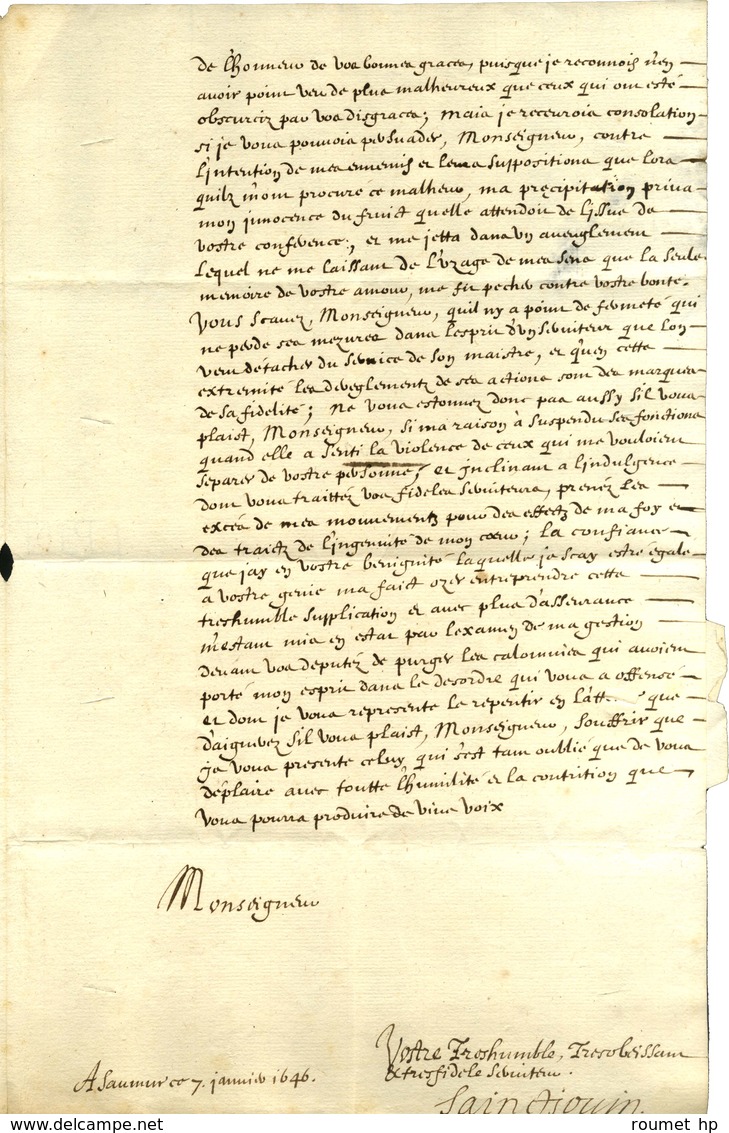 de l'honneur de vos bonnes graces, puisque je reconnois n'en
avoir point veu de plus malheureux que ceux qui ont esté
obscurciz par vos disgraces; Mais je recevrois consolation
si je vous pouvois persuader, Monseigneur, contre
l'intention de mes ennemis et leurs suppositions que lors
quilz m'ont procuré ce malheur, ma precipitation priva
mon innocence du fruict quelle attendoit de lissue de
vostre conference; et me jetta dans un aveuglement
Lequel ne me laissant de l'uzage de mes sens que la seule
memoire de vostre amour, me fit pecher contre vostre bonté.
Vous scavez, Monseigneur, quil ny a point de fermeté qui
ne perde ses mezures dans l'esprit d'un serviteur que l'on
veut détacher du service de son maistre, et qu'en cette
extremité les déreglementz de ses actions sont des marques
de sa fidelité; Ne vous estonnez donc pas aussy sil vous
plaist, Monseigneur, si ma raison à suspendu ses fonctions
quand elle a senti la violence de ceux qui me vouloient
separer de vostre personne; et inclinant a lindulgence
dont vous traittéz vos fideles serviteurs, prenéz les
excés de mes mouvementz pour des effectz de ma foy et
des traictz de l'ingenuité de mon cœur; la confiance
que jay en vostre benignité laquelle je scay estre égale
a vostre genie ma faict ozer entreprendre cette
treshumble supplication et avec plus d'asseurance
m'estant mis en estat par lexamen de ma gestion
devant vos deputéz de purger les calomnies qui avoient
porté mon esprit dans le desordre qui vous a offensé
et dont je vous represente le repentir en que
daignerez sil vous plaist, Monseigneur, souffrir que
je vous presente celuy qui s'est tant oublié que de vous
déplaire avec toutte l'humilité et la contrition que
vous pourra produire de vive voix
Monseigneur
Vostre Treshumble, Tresobeissant
& tresfidele serviteur.
A Saumur ce 7. janvier 1646.
Sainct Jouin.
roumet hp